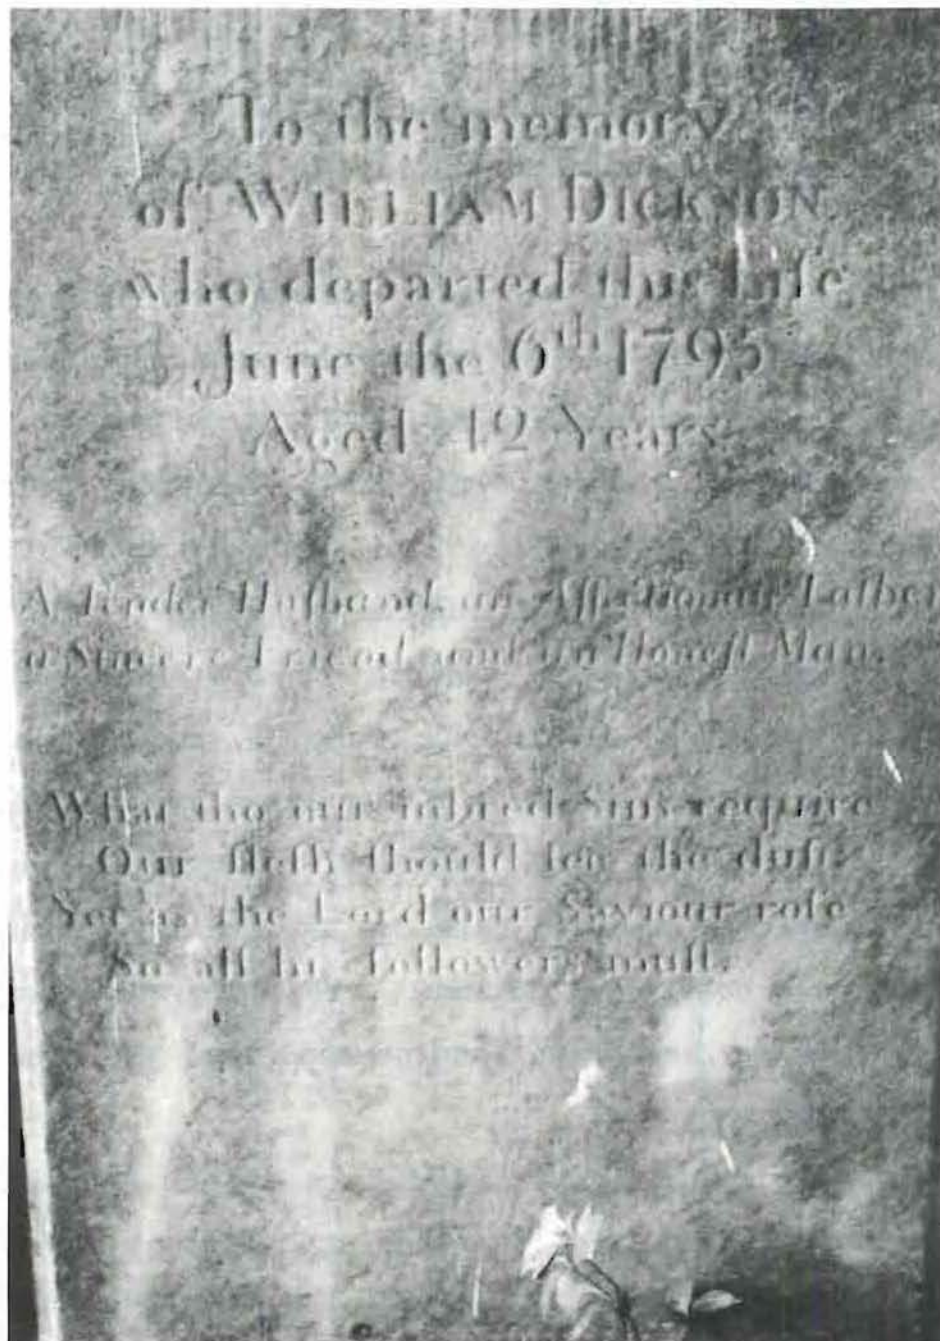 To the memory
of WILLIAM DICKSON
who departed this Life
June the 6th 1795
Aged 42 Years
A Tender Huſband, an Affectionate Father
a Sincere Friend and an Honeſt Man.
What tho our inbred Sins require
Our fleſh ſhould ſee the duſt:
Yet as the Lord our Saviour roſe
So all his followers muſt.